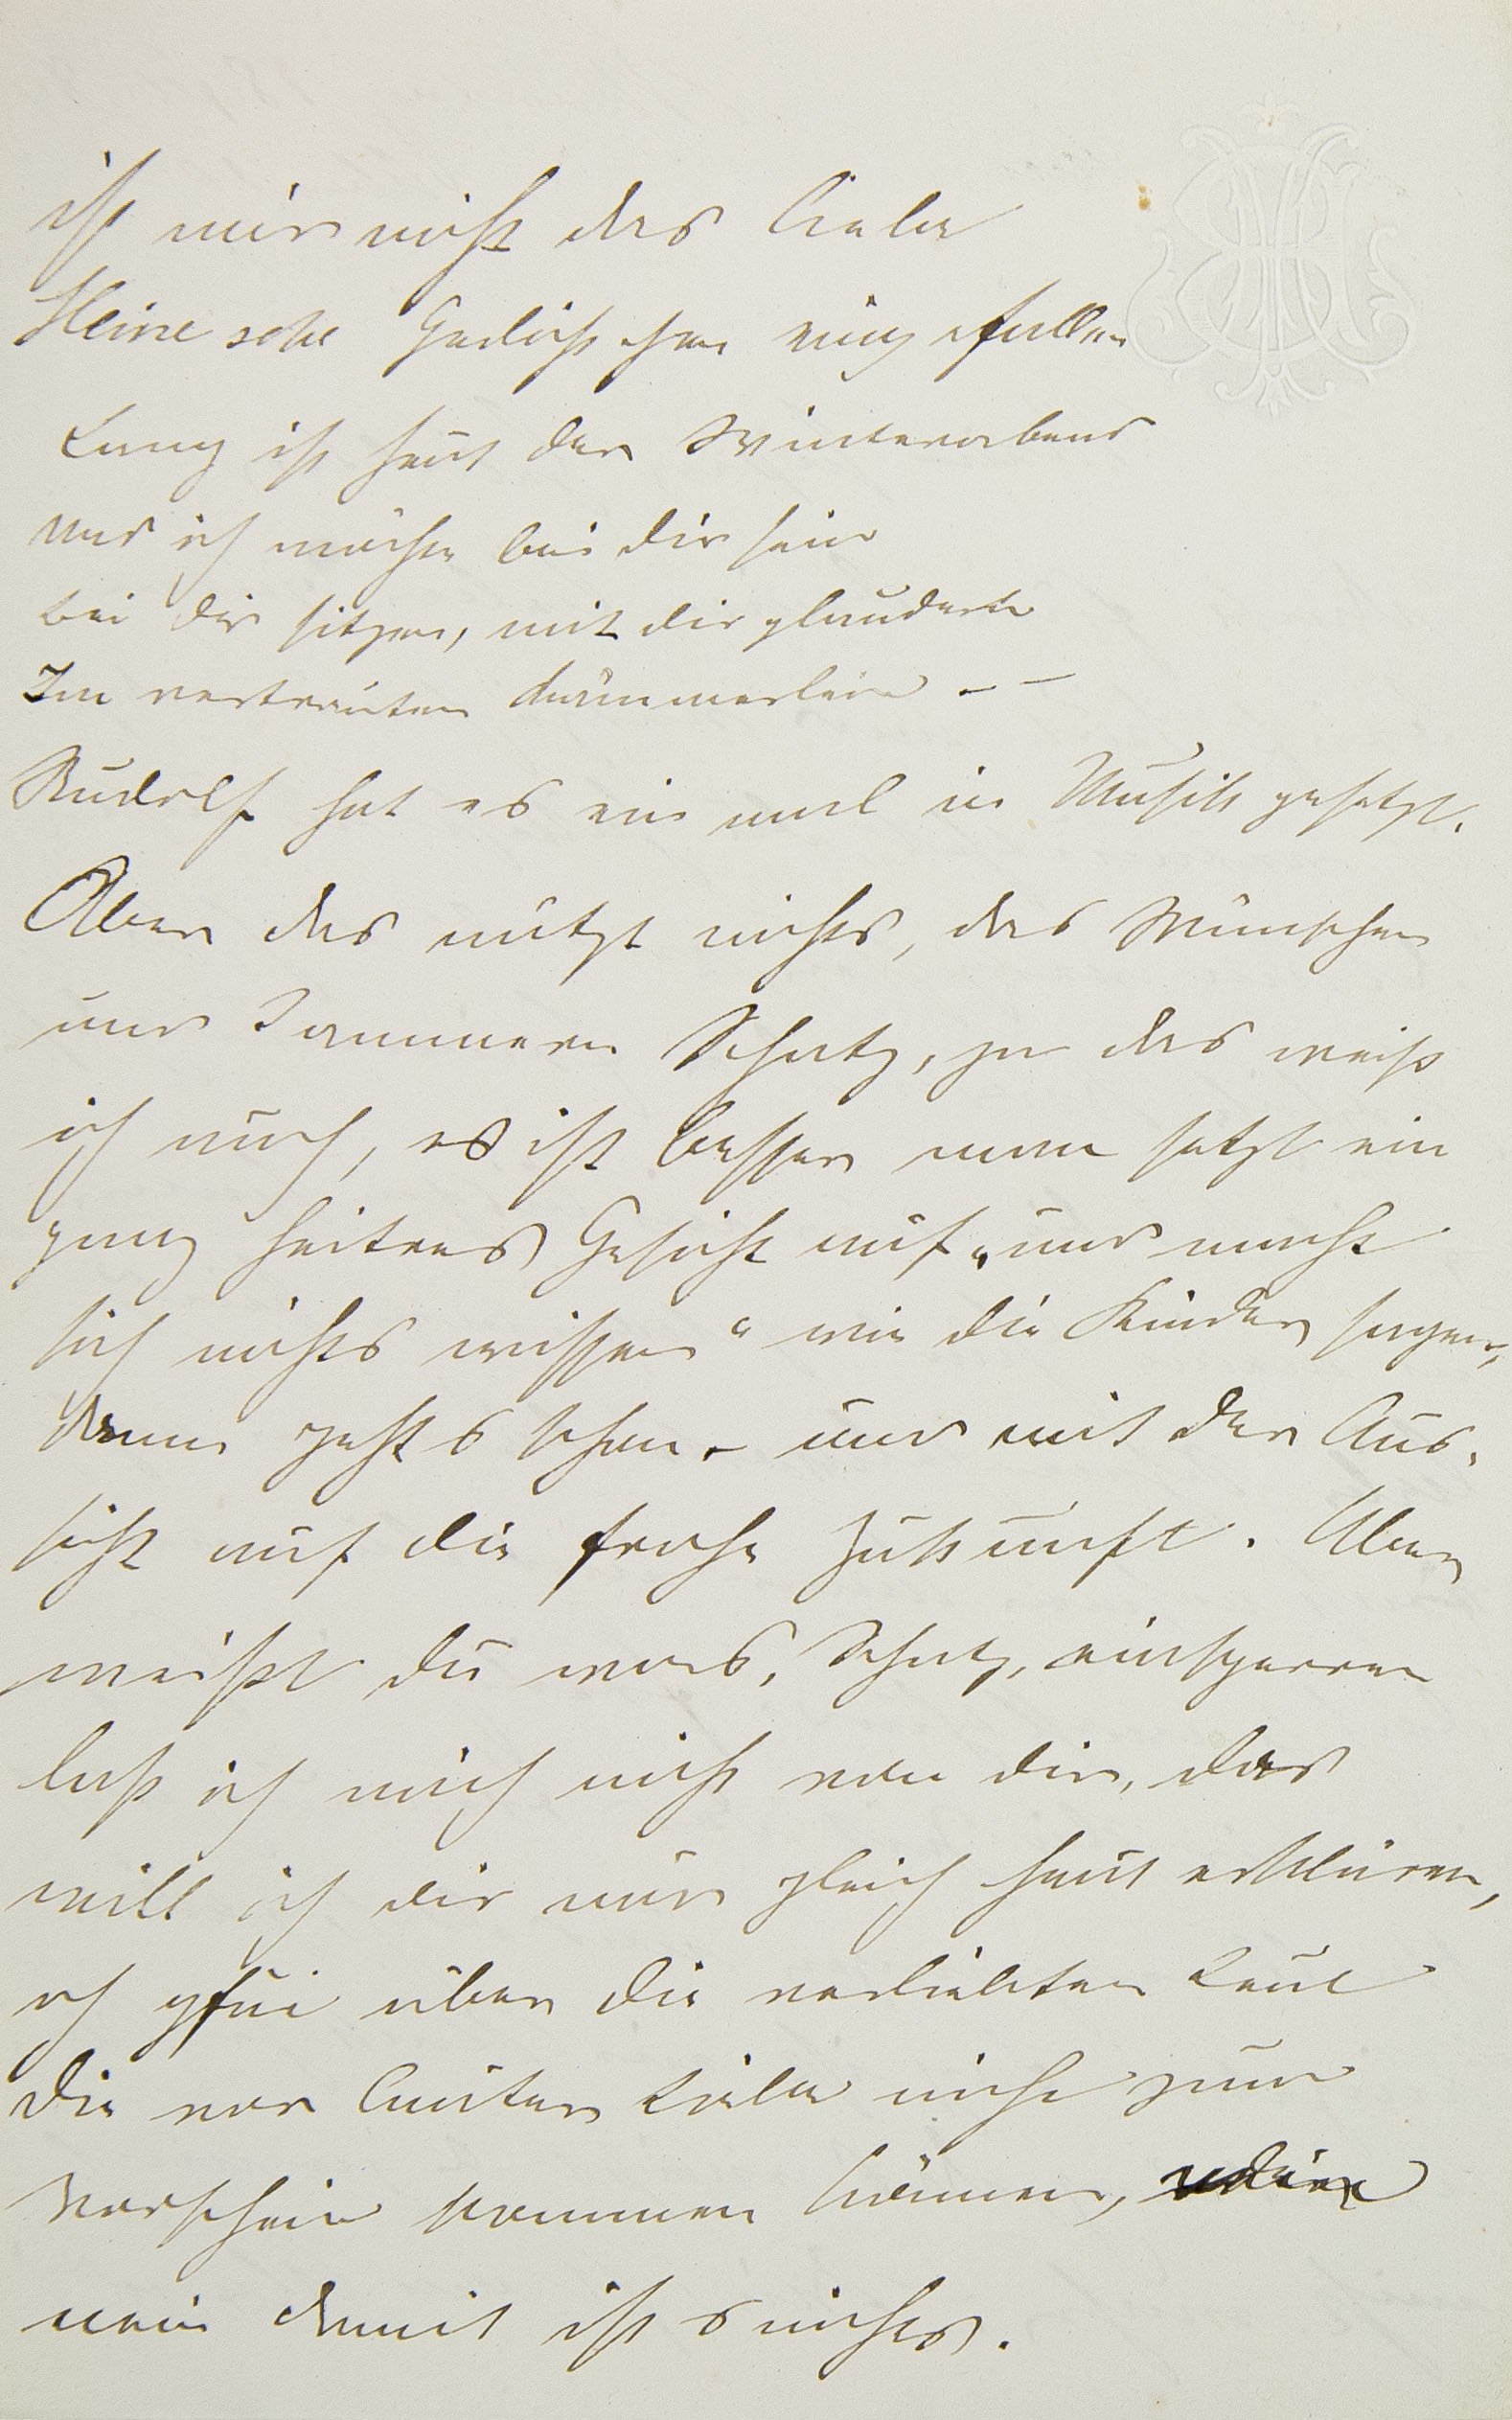 ist mir nicht das liebe
Heine sche Gedichtchen eingefallen
Lang ist heut der Winterabend
und ich möchte bei dir sein
bei dir sitzen, mit dir plaudern
Im vertrauten Kämmerlein – –
Rudolf hat es ein mal in Musik gesetzt.
Aber das nützt nichts, das Wünschen
und Jammern Schatz, ja das weiß
ich auch, es ist besser man setzt ein
ganz heiteres Gesicht auf „und macht
sich nichts wissen“ wie die Kinder sagen,
dann geht s schon – und mit der Aus-
sicht auf die frohe Zukunft. Aber
weißt du was, Schatz, einsperren
laß ich mich nicht von dir, das
will ich dir nur gleich heut erklären,
o pfui über die verliebten Leut
die vor lauter Liebe nicht zum
Vorschein kommen können,
nein damit ist s nichts.